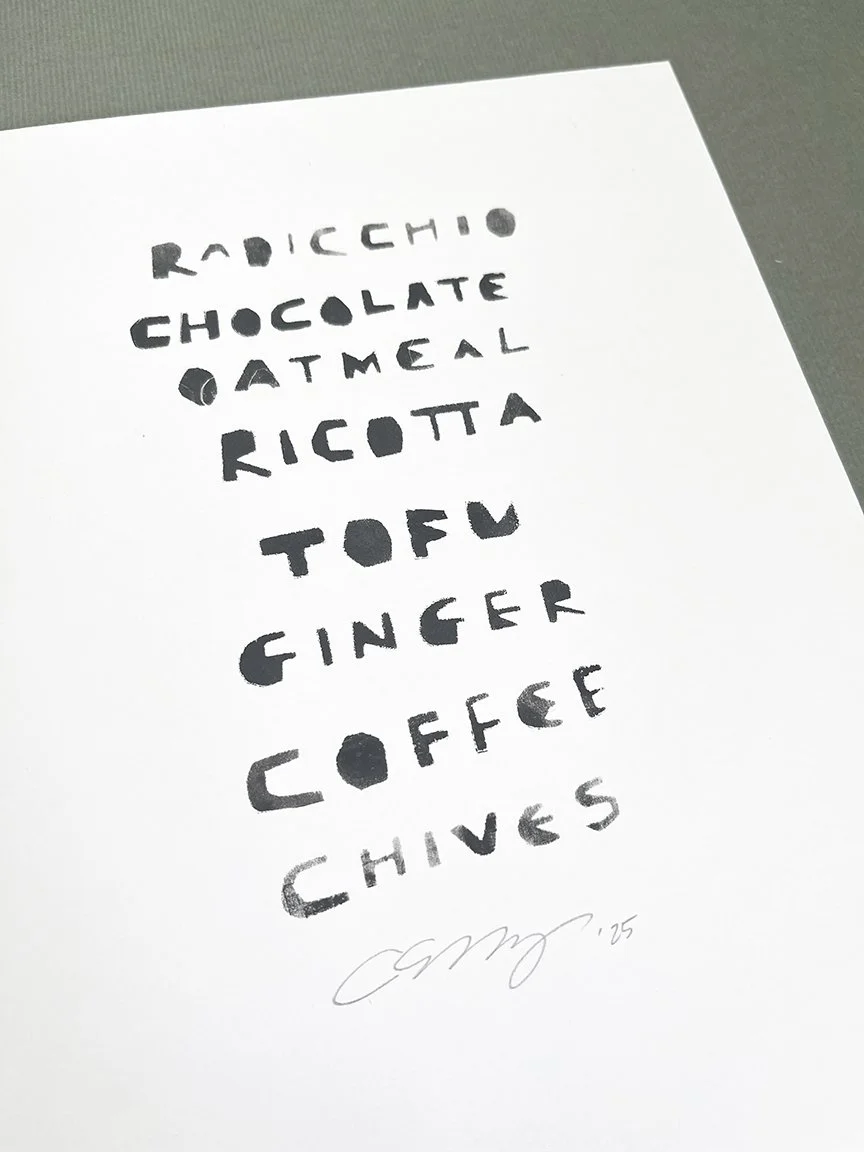 RADICCHIO
CHOCOLATE
OATMEAL
RICOTTA
TOFU
GINGER
COFFEE
CHIVES
'25